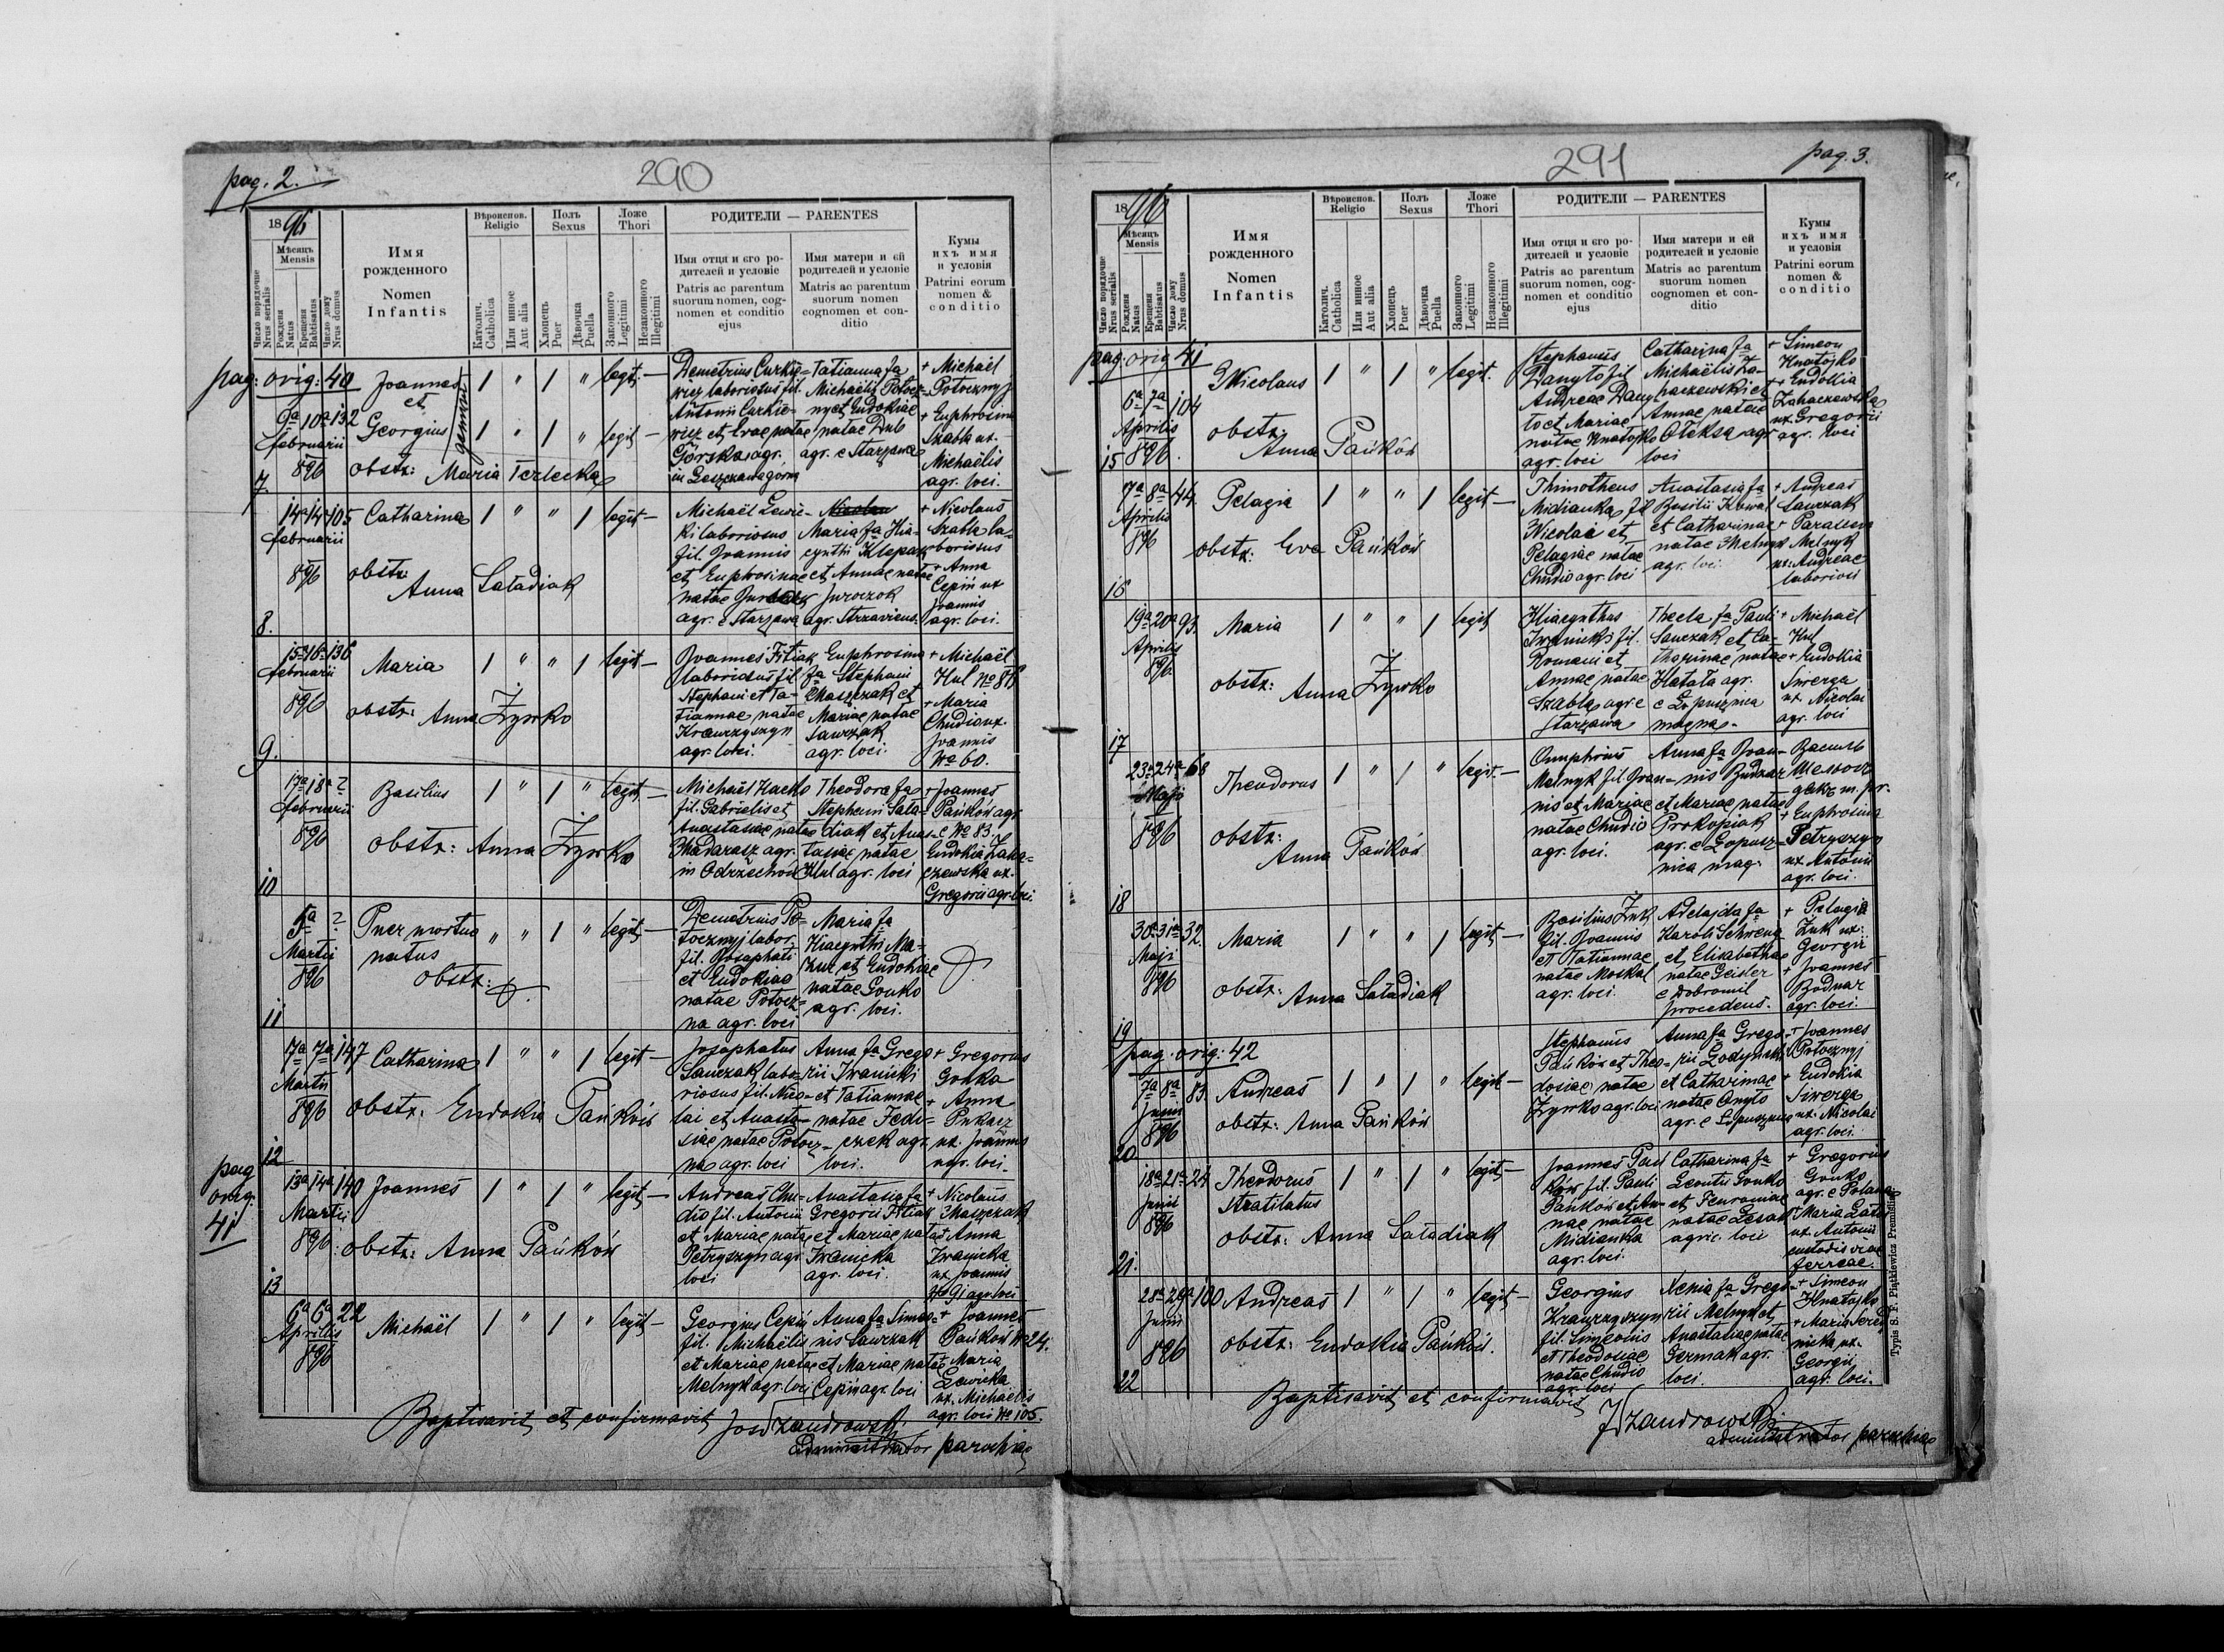 pag. 2.
290
1896
Мѣсяць
Mensis
Число порядочне
Nrus serialis
Рожденя
Natus
Крещеня
Babtisatus
Число дому
Nrus domus
Имя
рожденного
Nomen
Infantis
Вѣроиспов.
Religio
Католич.
Catholica
Или инное
Aut alia
Полъ
Sexus
Хлопець
Puer
Дѣвочка
Puella
Ложе
Thori
Законного
Legitimi
Незаконного
Illegitimi
РОДИТЕЛИ — PARENTES
Имя отця и єго ро-
дителей и условіе
Patris ac parentum
suorum nomen, cog-
nomen et conditio
ejus
Имя матери и єй
родителей и условіе
Matris ac parentum
suorum nomen
cognomen et con-
ditio
Кумы
ихъ имя
и условія
Patrini eorum
nomen &
conditio
pag: orig: 40
7.
9a 10a 132
februarii
896
Joannes
et
Georgius
gemini
1 " 1 " legit. —
1 " 1 " legit —
obstx: Maria Terlecka
Demetrius Curkie-
wicz laboriosus fil.
Antonii Curkie-
wicz et Evae natae
Górska agr.
Tatianna fa
Michaëlis Potocz-
ny et Eudokiae
natae Dub
agr. e Starzawa
+ Michaël
Potocznyj
+ Euphrosina
Szabla ux.
Michaëlis
agr. loci.
8.
14a 14a 105
februarii
896
Catharina
1 " " 1 legit —
obstx:
Anna Saładiak
Michaël Lewic-
ki laboriosus
fil. Joannis
et Euphrosinae
natae
agr. e Starzawa
Maria fa Hia-
cynthi Klepak
et Annae natae
Juroczok
agr. Strzaviens.
+ Nicolaus
Szabla la-
boriosus
+ Anna
Cepiń ux
Joannis
agr. loci.
9.
15a 16a 136
februarii
896
Maria
1 " " 1 legit —
obstx: Anna Żywko
Joannes Fitiak
laboriosus fil.
Stephani et Ta-
tiannae natae
Krawczyszyn
agr. loci.
Euphrosina
fa Stephani
Maszczak et
Mariae natae
Sawczak
agr. loci.
+ Michaël
Hul No 84
+ Maria
Chudio ux.
Joannis
No 60.
10
17a 18a ?
februarii
896
Basilius
1 " 1 " legit —
obstx: Anna Żywko
Michaël Hacko
fil. Gabrielis et
Anastasiae natae
Madarasz agr.
in Odrzechów
Theodora fa
Stephani Sała-
diak et Anas-
tasiae natae
Hul agr. loci
+ Joannes
Pańków agr.
e No 83.
Eudokia Zaha-
czewska ux.
Gregorii agr. loci.
11
5a ?
Martii
896
Puer mortuo
natus
" " 1 " legit —
obstx:
Demetrius Po-
tocznyj labor.
fil. Josaphati
et Eudokiae
natae Potocz-
na agr. loci
Maria fa
Hiacynthi Ma-
zur et Eudokiae
natae Gonko
agr. loci.
12
7a 7a 147
Martii
896
Catharina
1 " " 1 legit —
obstx: Eudokia Pańków
Josaphatus
Sawczak labo-
riosus fil. Nico-
lai et Anasta-
siae natae Potocz-
na agr. loci
Anna fa Grego-
rii Iwanicki
et Tatiannae
natae Fedi-
czek agr.
loci.
+ Gregorius
Gonko
+ Anna
Pukacz
ux. Joannis
agr. loci.
pag
orig:
41
13
13a 14a 140
Martii
896
Joannes
1 " 1 " legit —
obstx: Anna Pańków
Andreas Chu-
dio fil. Antonii
et Mariae natae
Petryszyn agr.
loci
Anastasia fa
Gregorii Fitiak
et Mariae natae
Iwanicka
agr. loci.
+ Nicolaus
Maszczak
+ Anna
Iwanicka
ux Joannis
No 91 agr. loci
6a 6a 22
Aprilis
896
Michaël
1 " 1 " legit —
Georgius Cepiń
fil. Michaëlis
et Mariae natae
Melnyk agr. loci
Anna fa Simeo-
nis Sawczak
et Mariae natae
Cepiń agr. loci
+ Joannes
Pańków No 24.
+ Maria
Lewicka
ux. Michaëlis
agr. loci No 105.
Baptisavit et confirmavit
administrator parochiae
291
pag. 3.
1896
Мѣсяць
Mensis
Число порядочне
Nrus serialis
Рожденя
Natus
Крещеня
Babtisatus
Число дому
Nrus domus
Имя
рожденного
Nomen
Infantis
Вѣроиспов.
Religio
Католич.
Catholica
Или инное
Aut alia
Полъ
Sexus
Хлопець
Puer
Дѣвочка
Puella
Ложе
Thori
Законного
Legitimi
Незаконного
Illegitimi
РОДИТЕЛИ — PARENTES
Имя отця и єго ро-
дителей и условіе
Patris ac parentum
suorum nomen, cog-
nomen et conditio
ejus
Имя матери и єй
родителей и условіе
Matris ac parentum
suorum nomen
cognomen et con-
ditio
Кумы
ихъ имя
и условія
Patrini eorum
nomen &
conditio
pag: orig 41
15
6a 7a 104
Aprilis
896
Nicolaus
1 " 1 " legit.
obstx:
Anna Pańków
Stephanus
Danyło fil
Andreae Dany-
ło et Mariae
natae Hnatojko
agr. loci
Catharina fa
Michaëlis Za-
haczewski et
Annae natae
Oleksa agr
loci
+ Simeon
Hnatojko
+ Eudokia
Zahaczewska
ux. Gregorii
agr. loci
16
7a 8a 44
Aprilis
896
Pelagia
1 " " 1 legit —
obstx: Eva Pańków
Thimotheus
Midianka fil
Nicolai et
Pelagiae natae
Chudio agr. loci
Anastasia fa
Basilii Kowal
et Catharinae
natae Melnyk
agr. loci.
+ Andreas
Sawczak
+ Melnyk
ux: Andreae
laboriosi
17
19a 20a 93.
Aprilis
896
Maria
1 " " 1 legit
obstx: Anna Żywko
Hiacynthus
Iwanicki fil.
Romani et
Annae natae
Szabla agr. e
Starzawa
Thecla fa Pauli
Sawczak et Ca-
tharinae natae
Hałata agr.
e Łopusznica
magna.
+ Michaël
Hul
+ Eudokia
Swerga
ux. Nicolai
agr. loci
18
23a 24a 68
Maji
896
Theodorus
1 " 1 " legit. —
obstx:
Anna Pańków
Onuphrius
Melnyk fil. Joan-
nis et Mariae
natae Chudio
agr. loci.
Anna fa Joan-
nis Budzar
et Mariae natae
Prokopiak
agr. e Łopusz-
nica mag.
Василь
+ Euphrosina
Petryszyn
ux. Antonii
agr. loci.
19
30a 31a 32.
Maji
896
Maria
1 " " 1 legit —
obstx: Anna Saładiak
Basilius Żuk
fil. Joannis
et Tatiannae
natae Moskal
agr. loci.
Adelajda fa
Karoli Schweng
et Elisabethae
natae Geisler
e Dobromil
procedens.
+ Pelagia
Żuk ux:
Georgii
+ Joannes
Bodnar
agr. loci.
pag. orig: 42
20
7a 8a 83.
Junii
896
Andreas
1 " 1 " legit —
obstx: Anna Pańków
Stephanus
Pańków et Theo-
dosiae natae
Żywko agr. loci
Anna fa Grego-
rii Łodyński
et Catharinae
natae Onyło
agr. e Łopusznica
+ Joannes
Potocznyj
+ Eudokia
Swerga
ux. Nicolai
agr. loci.
21.
18a 21a 24
Junii
896
Theodorus
Stratilatus
1 " 1 " legit —
obstx: Anna Saładiak
Joannes Pań-
ków fil. Pauli
Pańków et An-
nae natae
Midianka
agr. loci.
Catharina fa
Leontii Gonko
et Feuroniae
natae Lesak
agric. loci
+ Gregorius
Gonko
agr. e Polana
+ Maria
ux. Antonii
custodis viae
ferreae.
22
28a 29a 100
Junii
896
Andreas
1 " 1 " legit —
obstx: Eudokia Pańków.
Georgius
Krawczyszyn
fil. Simeonis
et Theodosiae
natae Chudio
agr. loci
Xenia fa Grego-
rii Melnyk et
Anastasiae natae
Germak agr.
loci.
+ Simeon
Hnatojko
+ Maria
ux.
Georgii
agr. loci.
Typis S. F. Piątkiewicz Premisliae
Baptisavit et confirmavit
administrator parochiae